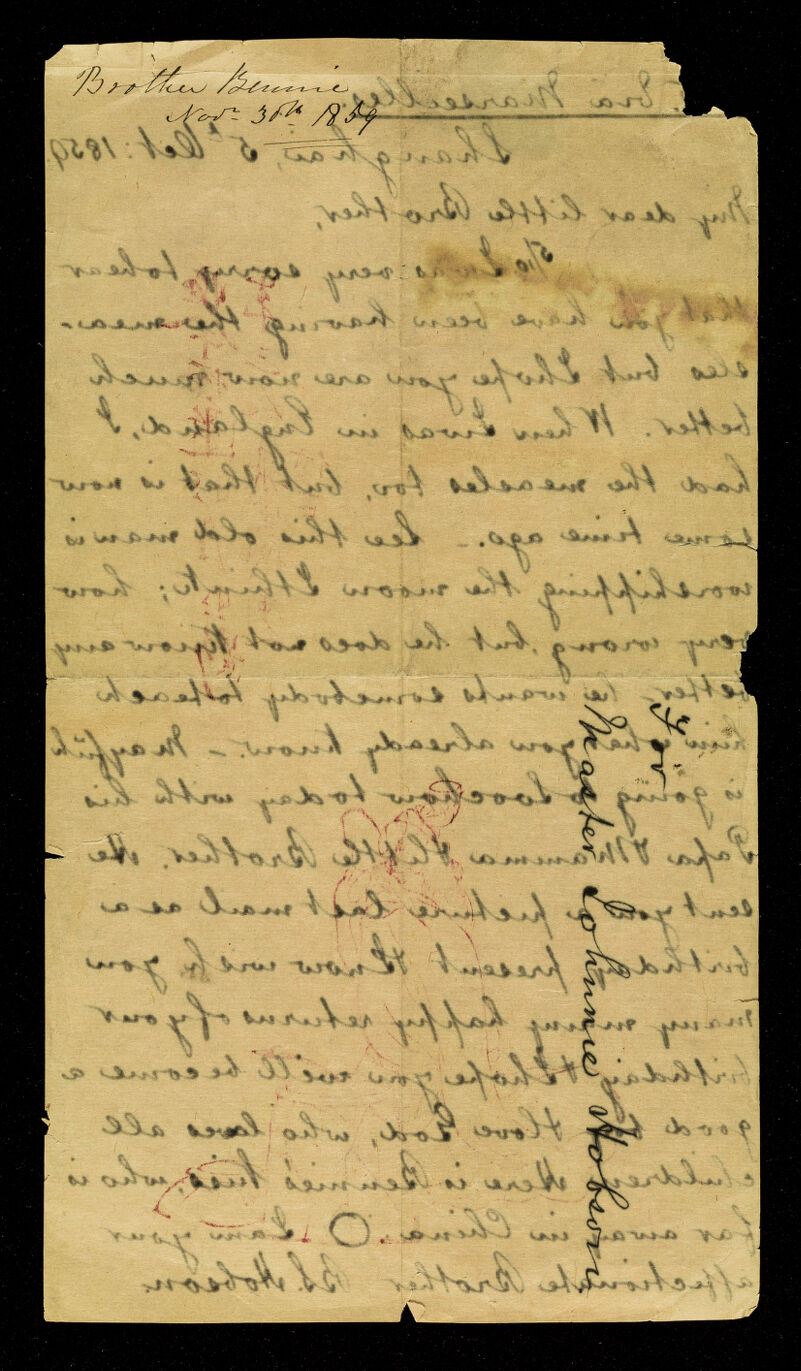 Brother Bennie
Novr 30th 1859
Via Marseilles.
Shanghai, 5th Oct: 1859
My dear little Brother,
I was very sorry to hear
that you have been having the mea-
sles but I hope you are now much
better. When I was in England, I,
had the measles too, but that is now
some time ago. _ See this old man is
worshipping the moon I think; how
very wrong, but he does not know any
better, he wants somebody to teach
him what you already know. _
is going to Soochow today with his
Papa Mamma & little Brother. He
sent you a picture last mail as a
birthday present & I now wish you
many many happy returns of your
birthday & I hope you will become a
good & love God, who loves all
children. Here is Bennie's kiss, who is
far away in China. O I am your
affectionate Brother B.S. Hobson.
For
Master Johnnie Hobson